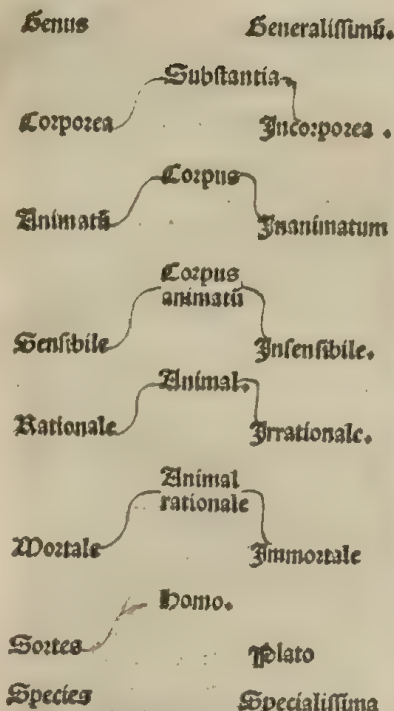 Genus Generalissimū.
Substantia
Corporea Incorporea .
Corpus
Animatū Inanimatum
Corpus
animatū
Sensibile Insensibile.
Animal.
Rationale Irrationale.
Animal
rationale
Mortale Immortale
Homo.
Sortes Plato
Species Specialissima